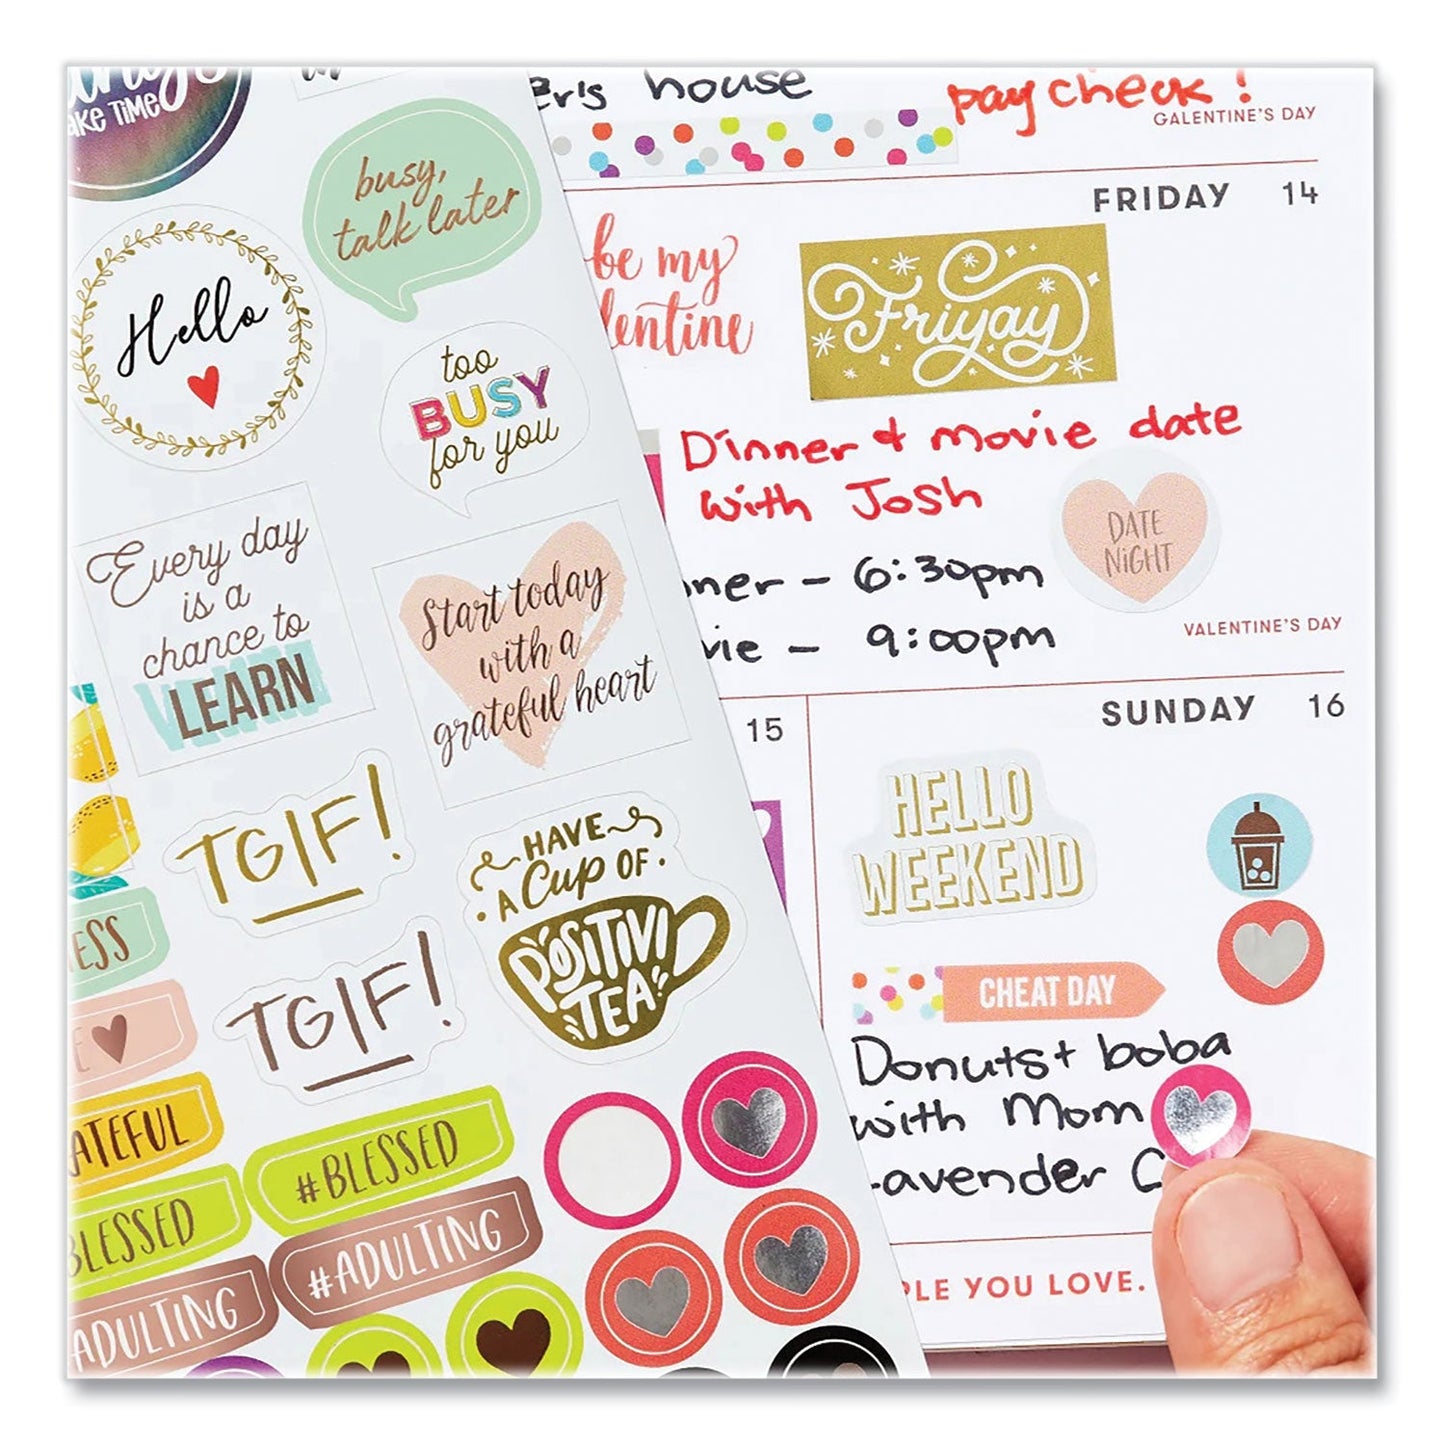 TAKE TIME
busy,
talk later
Hello
too
BUSY
for you
Every day
is a
chance to
LEARN
Start today
with a
grateful heart
TGIF!
HAVE
A Cup OF
POSITIVI
TEA
TGIF!
#BLESSED
BLESSED
#ADULTING
ADULTING
house
pay check!
GALENTINE'S DAY
FRIDAY 14
be my
Friyay
Dinner + movie date
with Josh
DATE
NIGHT
– 6:30pm
– 9:00pm
VALENTINE'S DAY
15
SUNDAY 16
HELLO
WEEKEND
CHEAT DAY
Donuts + boba
with Mom
YOU LOVE.